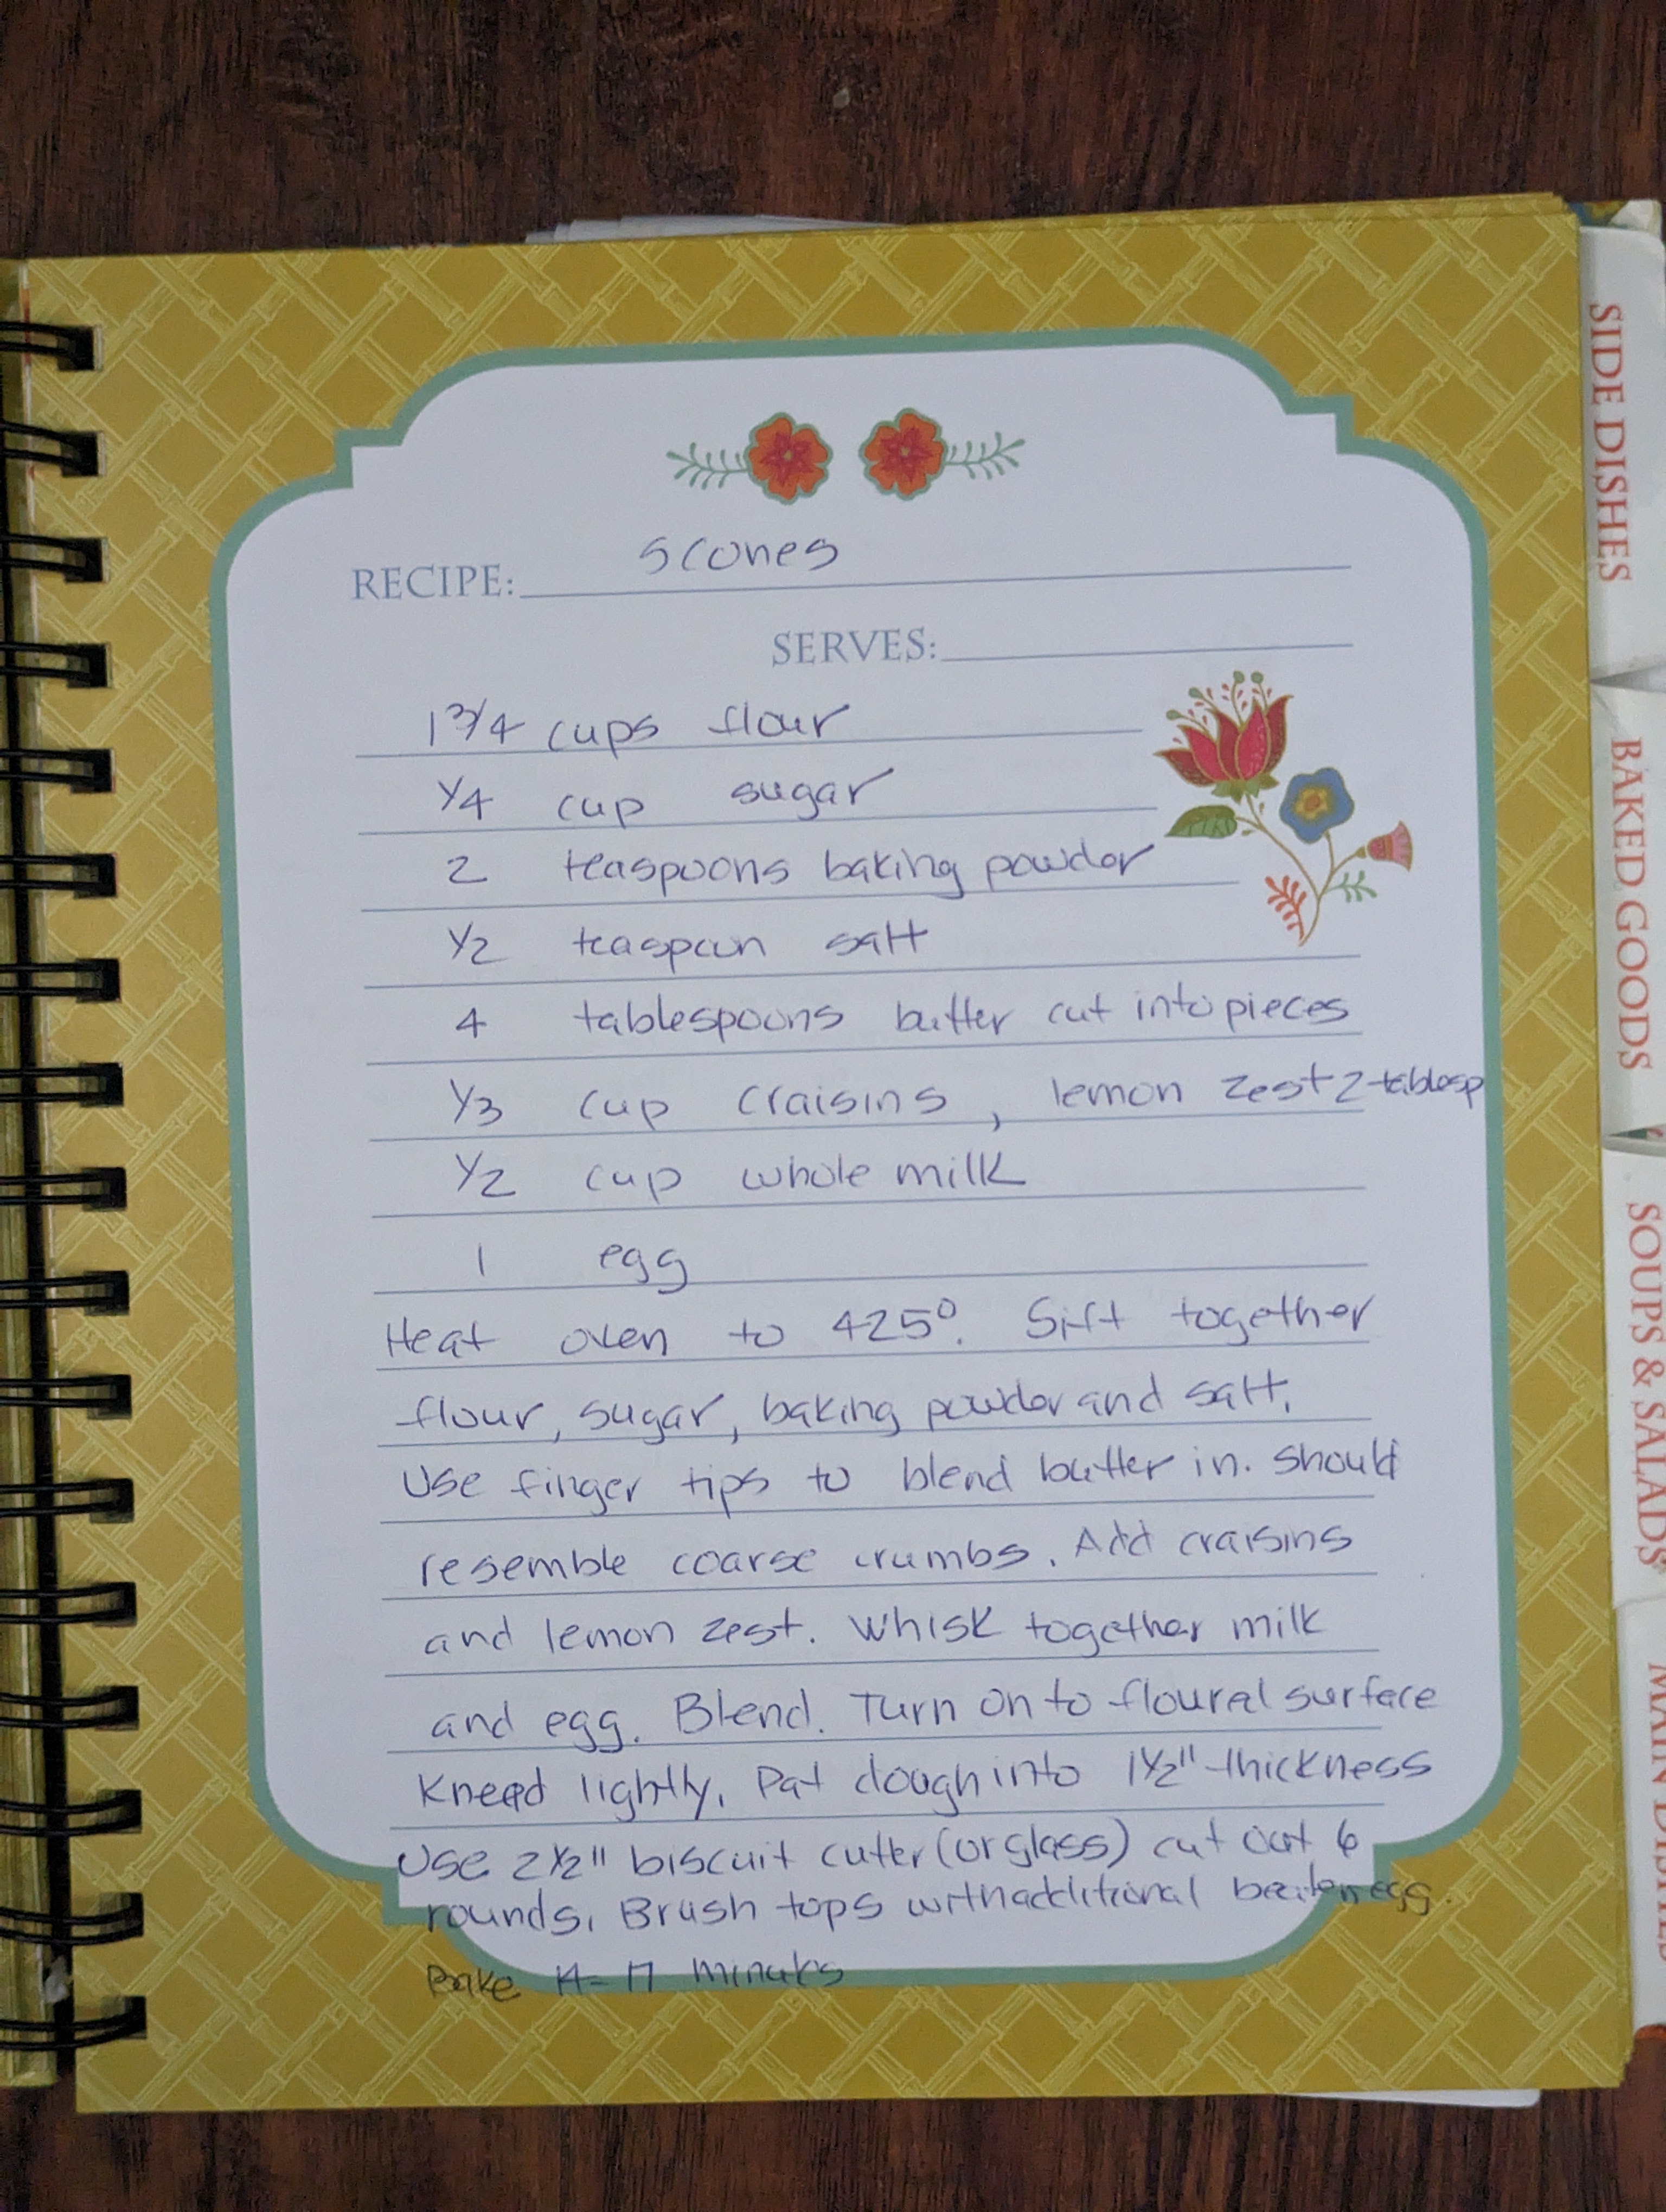 RECIPE: Scones
SERVES:
1 3/4 cups flour
1/4 cup sugar
2 teaspoons baking powder
1/2 teaspoon salt
4 tablespoons butter cut into pieces
1/3 cup craisins, lemon zest 2 tablesp
1/2 cup whole milk
1 egg
Heat oven to 425°. Sift together
flour, sugar, baking powder and salt.
Use finger tips to blend butter in. Should
resemble coarse crumbs. Add craisins
and lemon zest. Whisk together milk
and egg. Blend. Turn on to floural surface
Knead lightly. Pat dough into 1 1/2" thickness
Use 2 1/2" biscuit cutter (or glass) cut out 6
rounds. Brush tops with additional beaten egg.
Bake 14-17 minutes
SIDE DISHES
BAKED GOODS
SOUPS & SALADS
MAIN DISHES